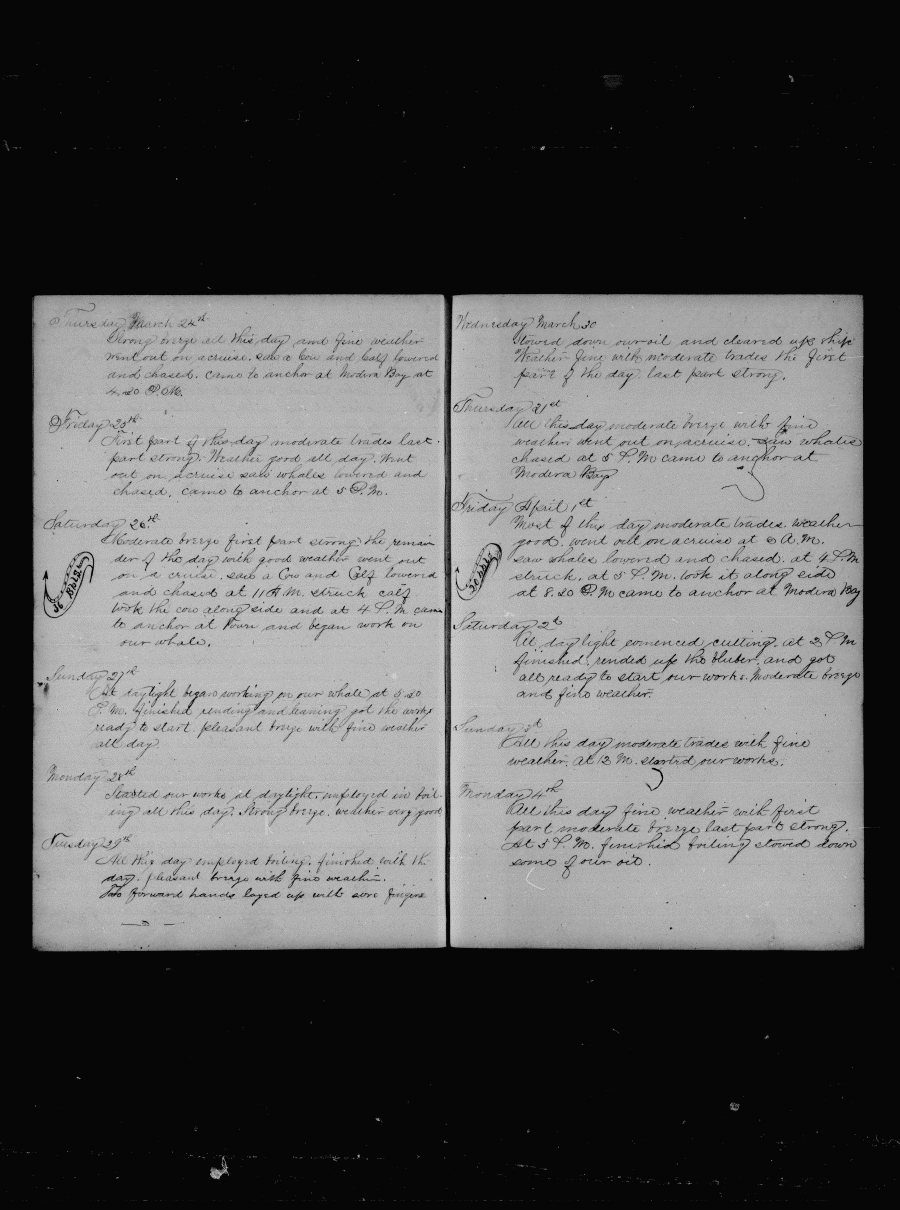 Thursday March 24th
Strong breze all this day and fine weather
went out on acruise. saw a Cow and Calf lowered
and chased. came to anchor at Modira Bay at
4.30 P.M.
Friday 25th
First part of this day moderate trades last
part strong. Weather good all day. Went
out on acruise saw whales lowered and
chased. came to anchor at 5 P.M.
Saturday 26th
Moderate breze first part strong the remain
der of the day with good weather went out
on a cruise. saw a Cow and Calf lowered
and chased at 11 A.M. struck calf
took the cow along side and at 4 P.M. came
to anchor at Town and began work on
our whale.
Bolls
Sunday 27th
At daylight began working on our whale at 9.30
P.M. finished rending and leaning got the works
ready to start. pleasant breze with fine weather
all day.
Monday 28th
Started our works at daylight. imployed in boil-
ing all this day. Strong breze. weather very good
Tuesday 29th
All this day employed boiling. finished with the
day. pleasant breze with fine weather.
Two forward hands layed up with sore fingers
Wednesday March 30
Stowed down our oil and cleared up ship
Weather fine with moderate trades the first
part of the day last part strong.
Thursday 31st
All this day moderate breze with fine
weather went out on acruise. saw whales
chased at 5 P.M came to anchor at
Modira Bay
Friday April 1st
Most of this day moderate trades. weather
good. went out on acruise at 6 A.M.
saw whales lowered and chased. at 4 P.M
struck. at 5 P.M. took it along side
at 8.30 P.M came to anchor at Modira Bay
30 bbls
Saturday 2d
At day light comenced cutting. at 3 P.M
finished. rended up the bluber. and got
all ready to start our works. Moderate breze
and fine weather.
Sunday 3d
All this day moderate trades with fine
weather. at 12 M. started our works.
Monday 4th
All this day fine weather with first
part moderate breze last part strong.
At 3 P.M. finished boiling stowed down
some of our oil.